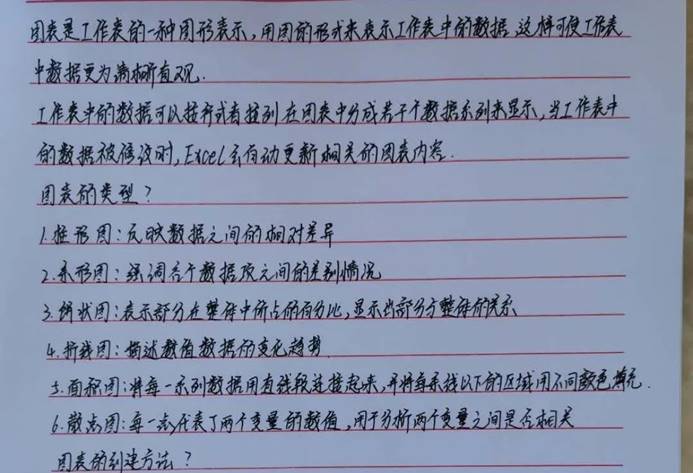 图表是工作表的一种图形表示,用图的形式来表示工作表中的数据,这样可使工作表
中数据更为清晰而直观.
工作表中的数据可以按行或者按列在图表中分成若干个数据系列来显示,当工作表中
的数据被修改时,Excel会自动更新相关的图表内容.
图表的类型?
1.柱形图:反映数据之间的相对差异
2.条形图:强调各个数据项之间的差别情况
3.饼状图:表示部分在整体中所占的百分比,显示出部分与整体的关系
4.折线图:描述数值数据的变化趋势.
5.面积图:将每一系列数据用直线段连接起来,并将每条线以下的区域用不同颜色填充.
6.散点图:每一点代表了两个变量的数值,用于分析两个变量之间是否相关
图表的创建方法?